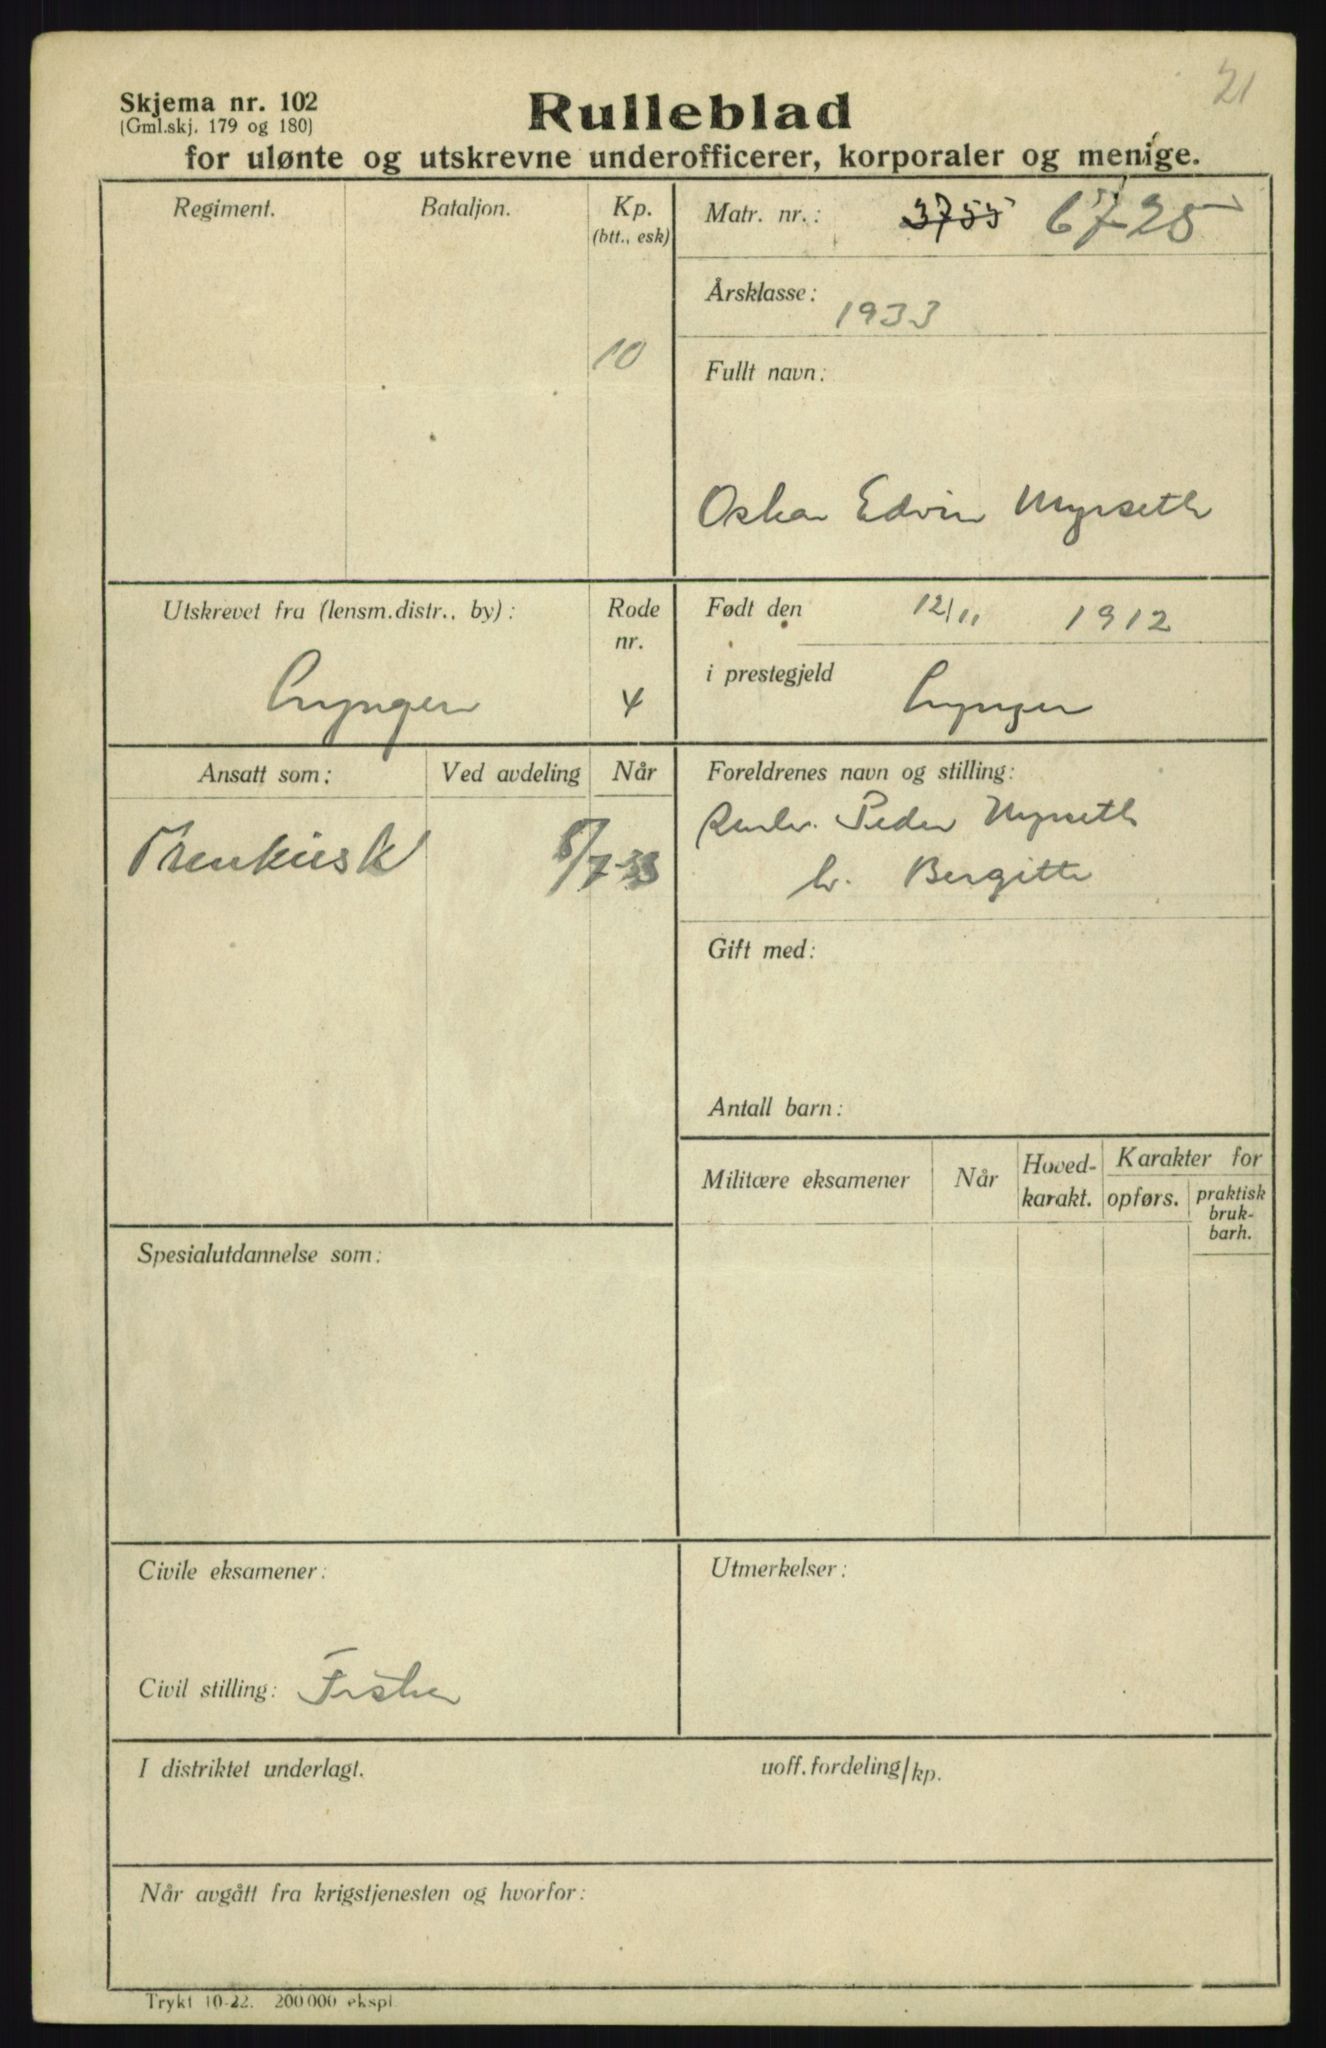 21
Skjema nr. 102
(Gml.skj. 179 og 180)
Rulleblad
for ulønte og utskrevne underofficerer, korporaler og menige.
Regiment.
Bataljon.
Kp.
(btt., esk)
10
Matr. nr.: 3755 6725
Årsklasse: 1933
Fullt navn:
Oskar Edvin Myrseth
Utskrevet fra (lensm.distr., by):
Lyngen
Rode
nr.
4
Født den 12/11 1912
i prestegjeld Lyngen
Ansatt som:
Ved avdeling
Når
7-33
Foreldrenes navn og stilling:
Peder Myrseth
h. Bergitte
Gift med:
Antall barn:
Militære eksamener
Når
Hoved-
karakt.
Karakter for
opførs.
praktisk
bruk-
barh.
Spesialutdannelse som:
Civile eksamener:
Civil stilling: Fisker
Utmerkelser:
I distriktet underlagt.
uoff. fordeling/kp.
Når avgått fra krigstjenesten og hvorfor:
Trykt 10-22. 200 000 ekspl.